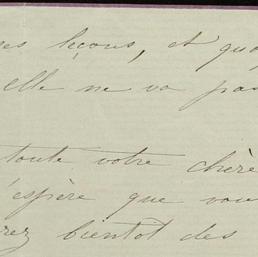 ses leçons, et quoi
elle ne va pas
toute votre chère
j'espère que vous
rez bientôt des